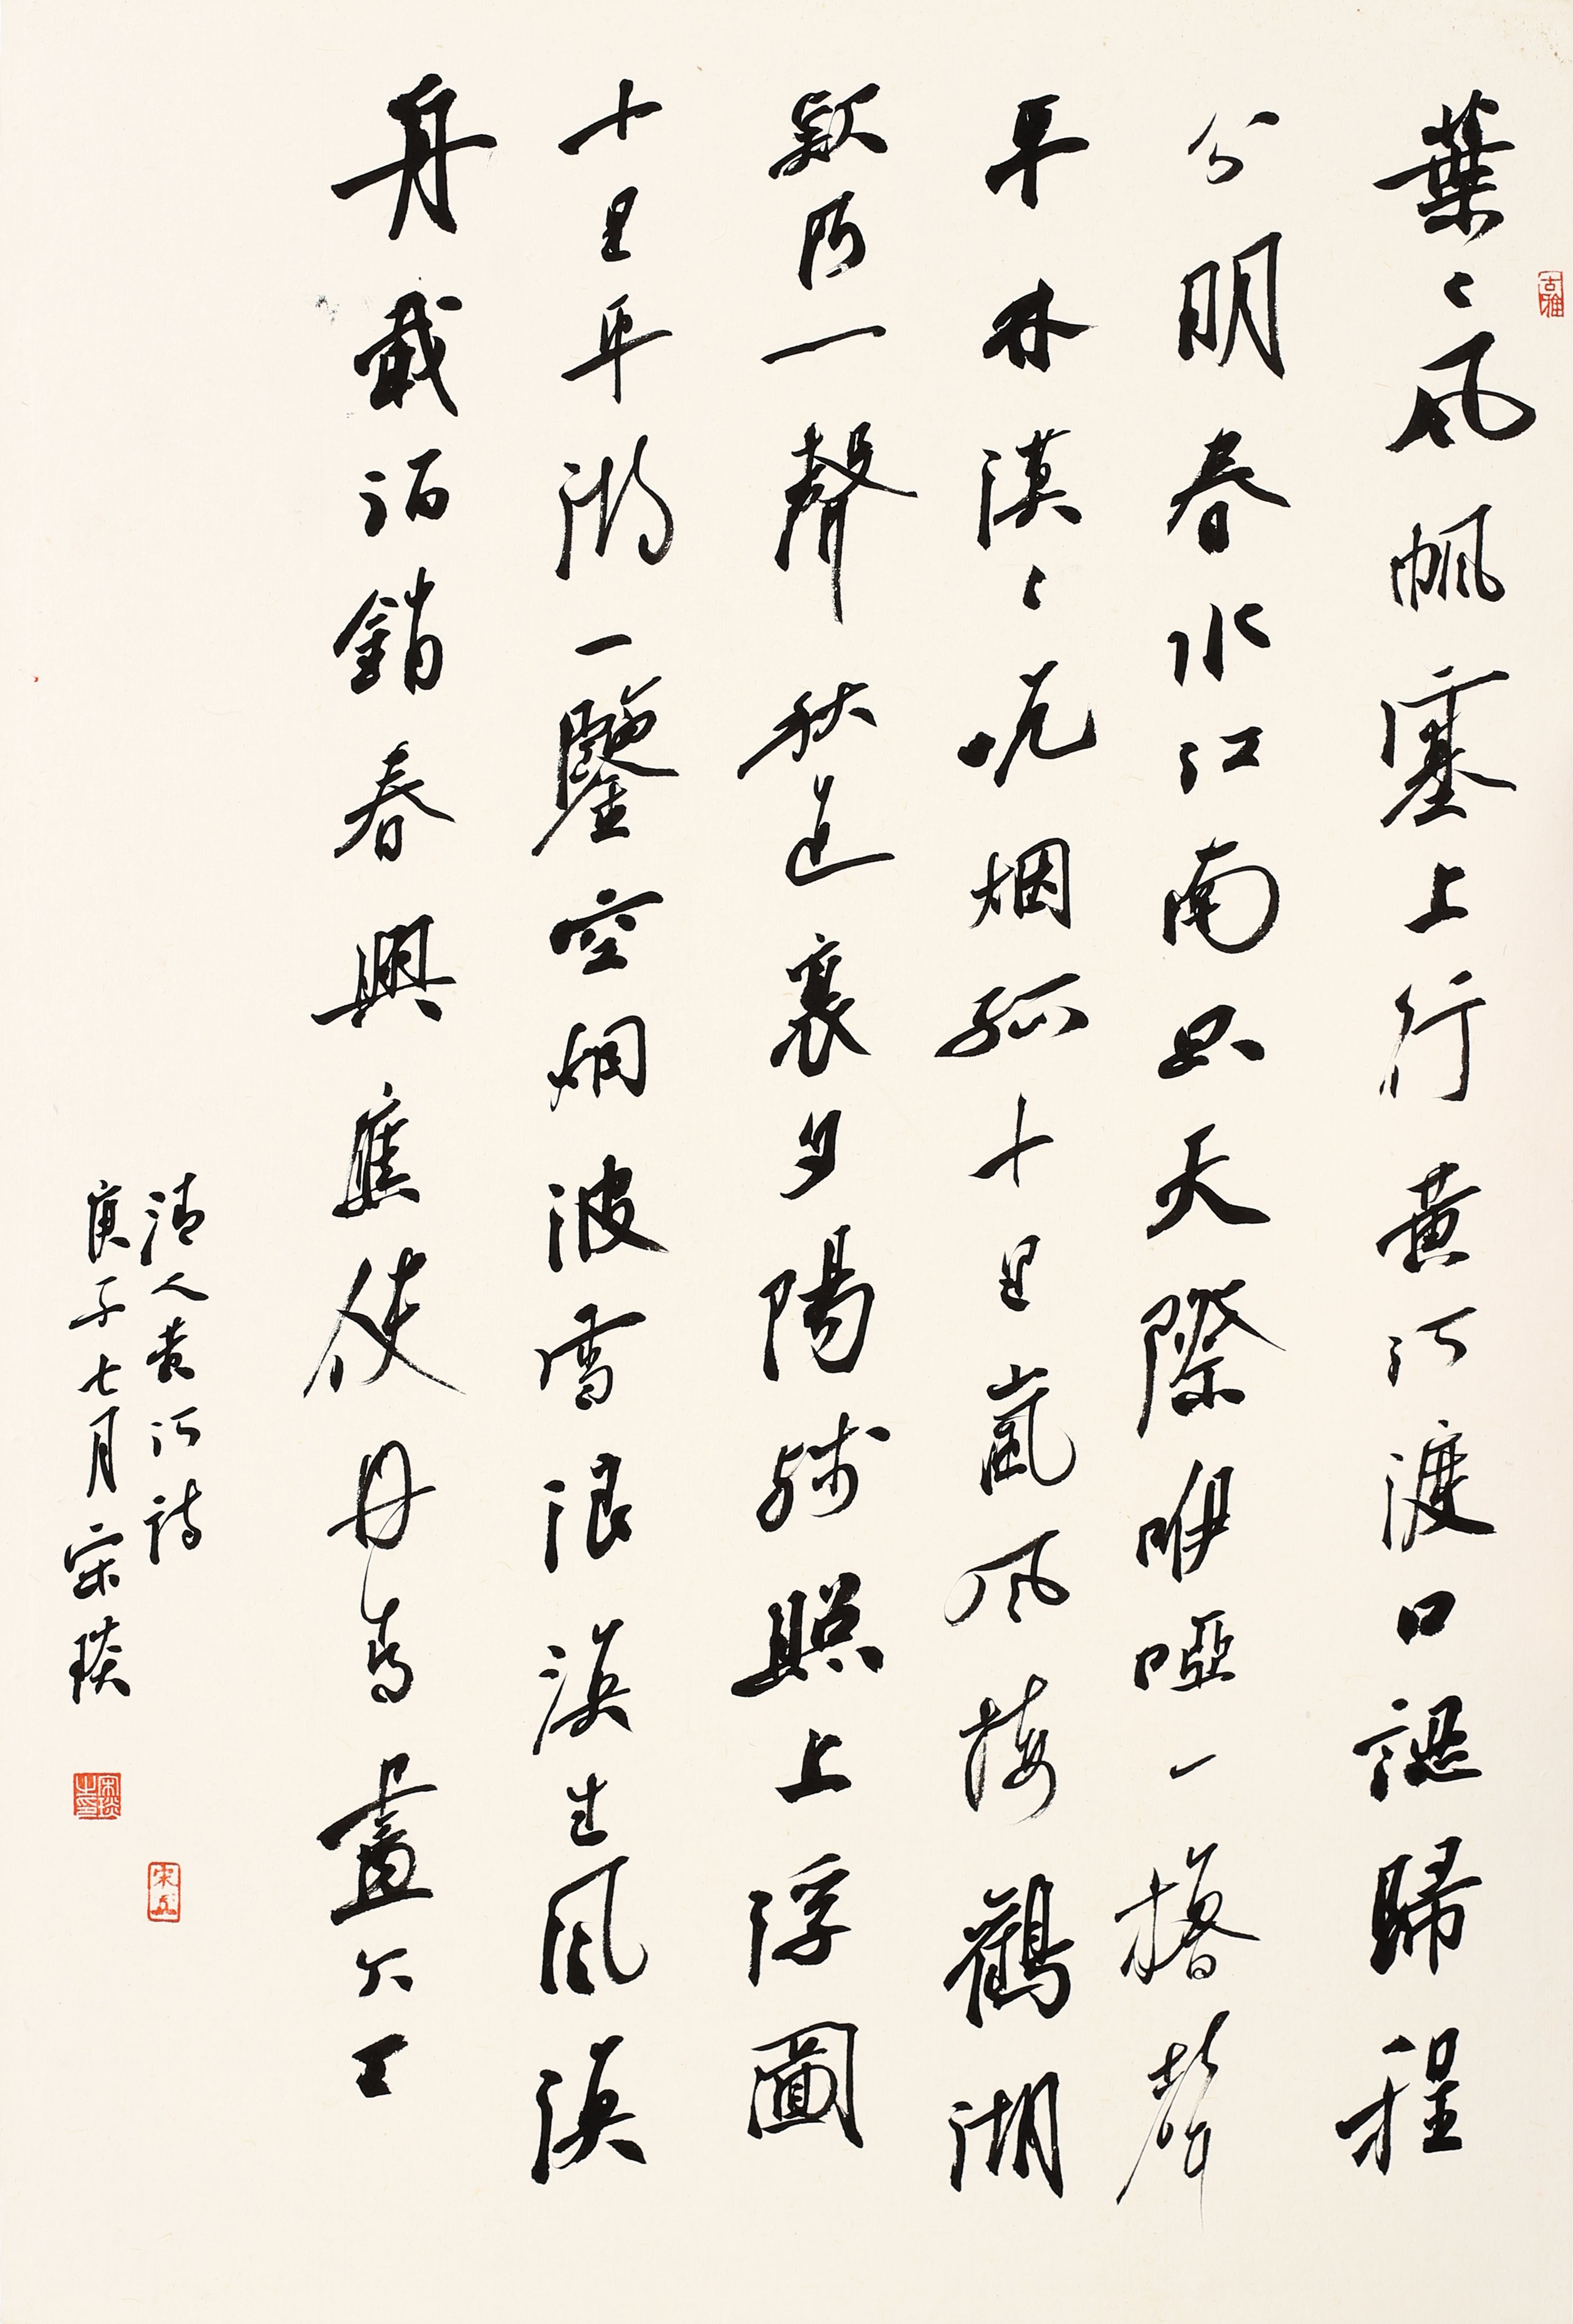 葉〻風帆塞上行黃河渡口認歸程
分明春水江南天際咿啞一櫓聲
平林漠〻晚烟孤十里嵐風接鸛湖
欸乃一聲秋色裏夕陽殘照上浮圖
十里平湖一鑒空烟波雪浪渙生風漁
舟載酒銷春興應使丹青畫不工
清人黃河詩
庚子七月宋琰
古雅
宋琰之印